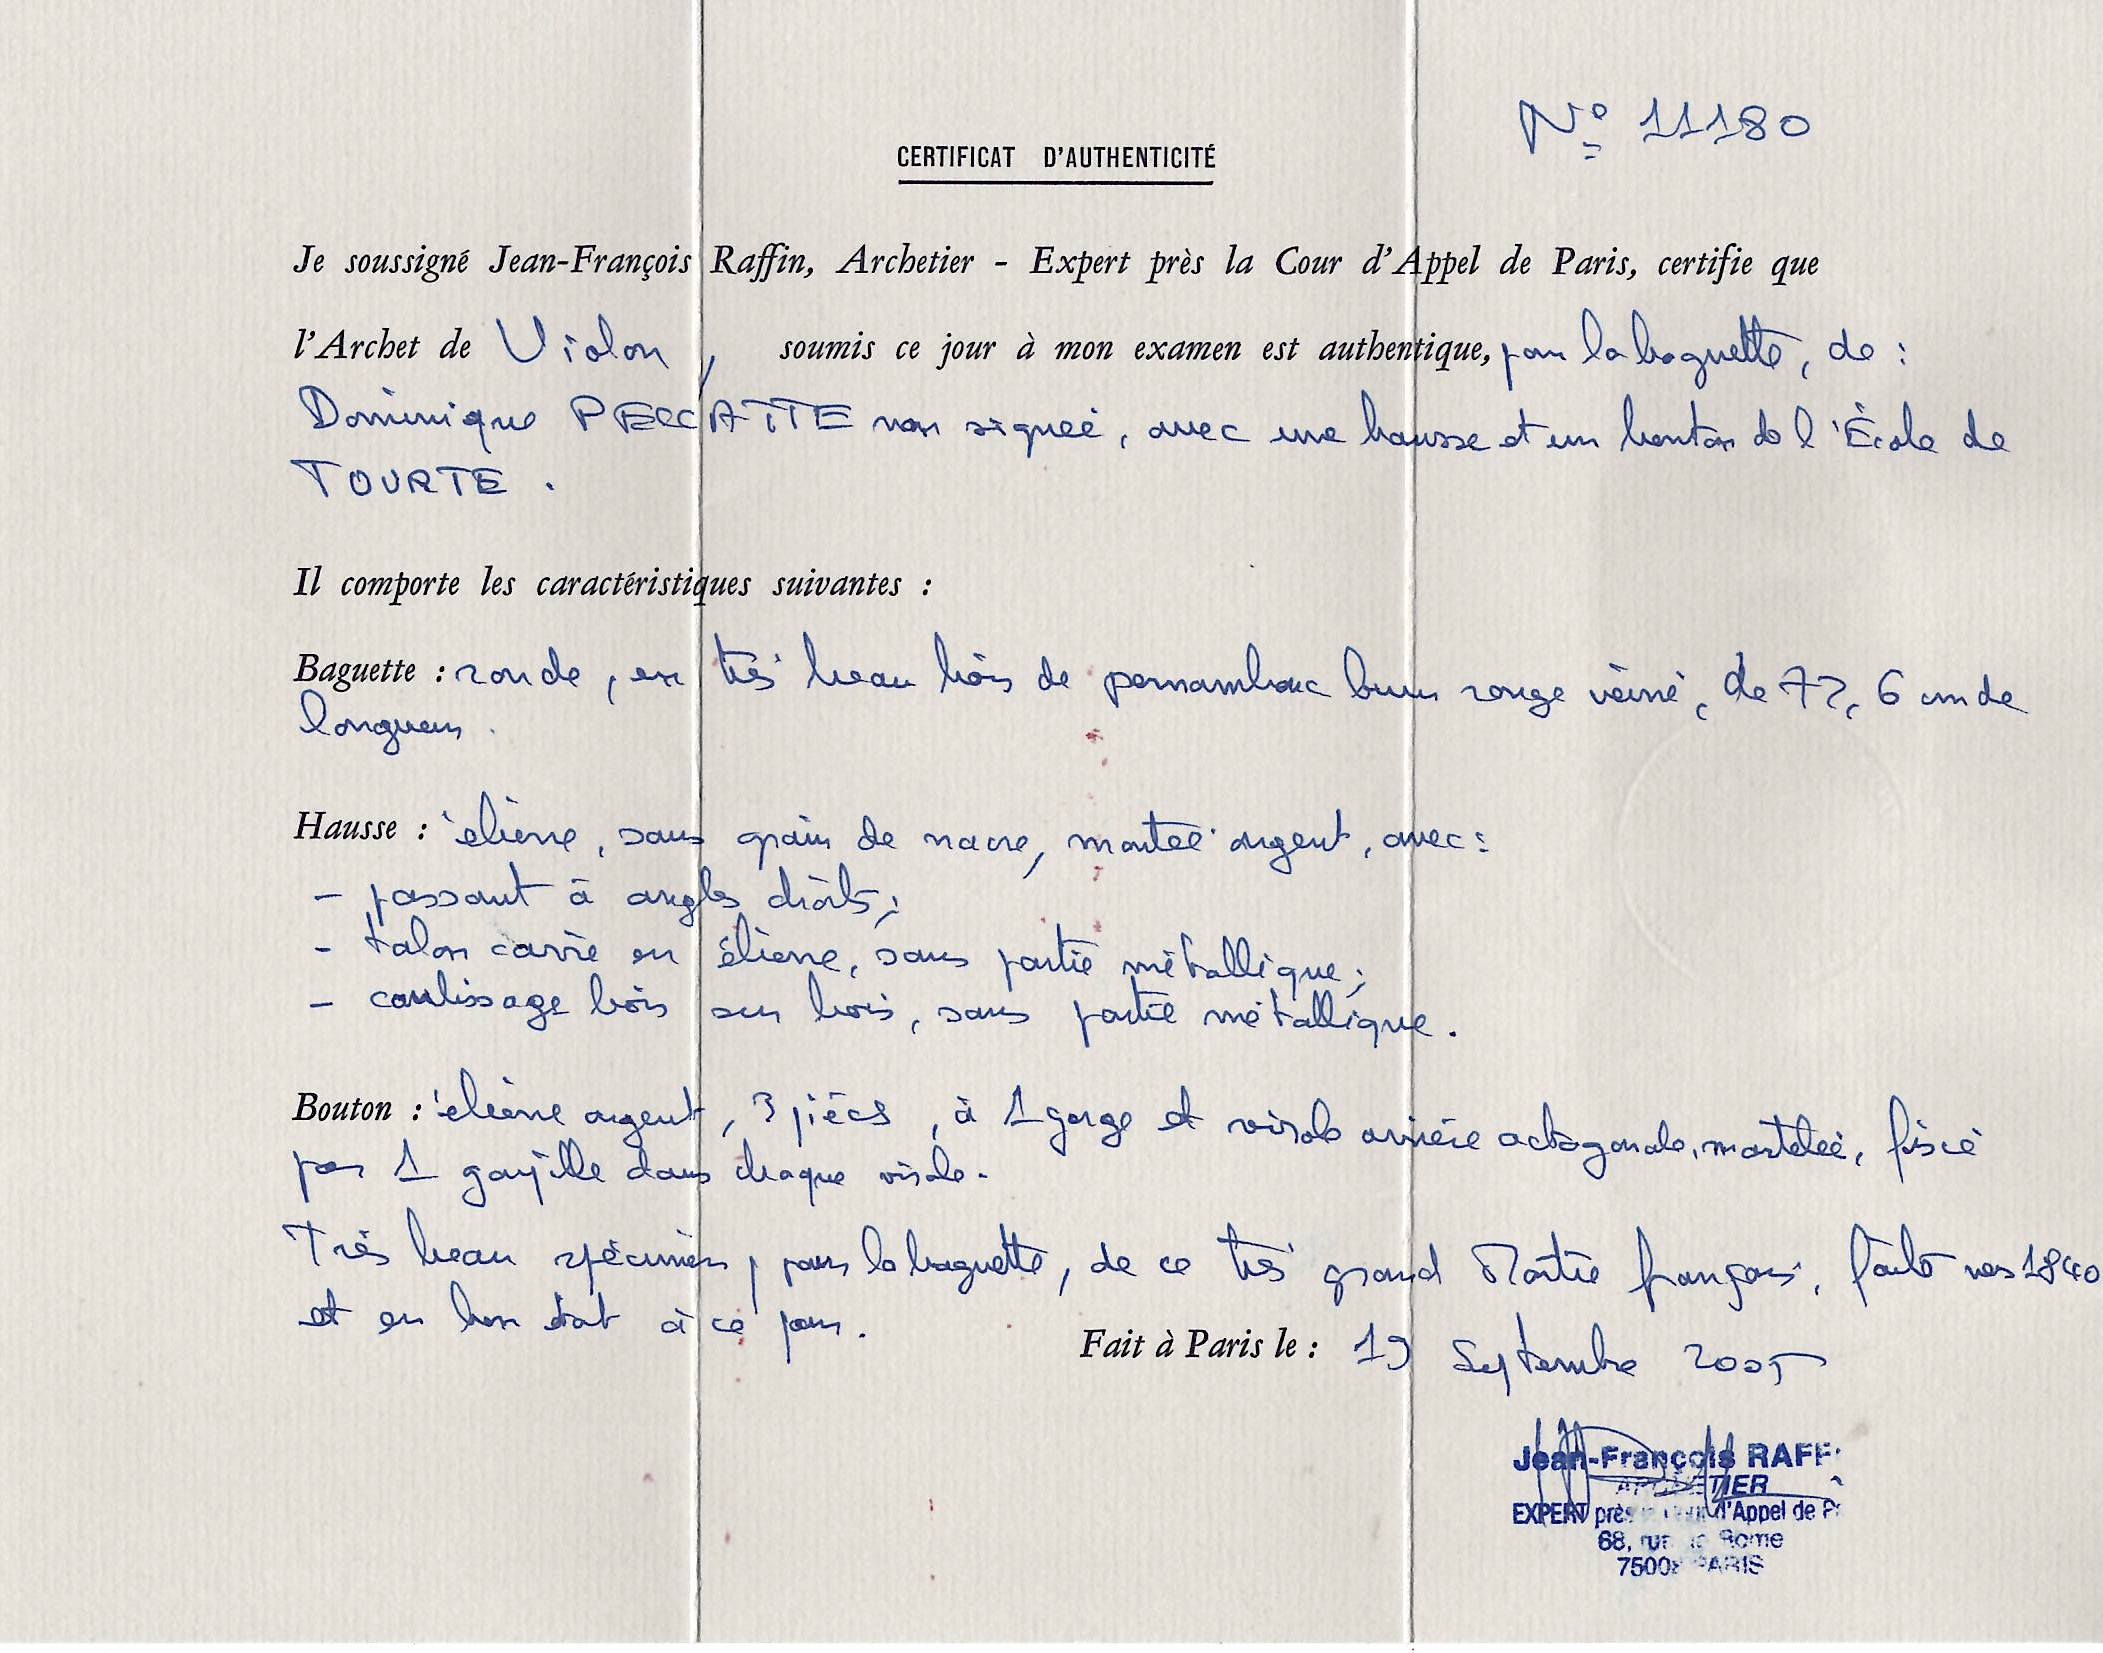 Nº 11180
CERTIFICAT D'AUTHENTICITÉ
Je soussigné Jean-François Raffin, Archetier - Expert près la Cour d'Appel de Paris, certifie que
l'Archet de Violon, soumis ce jour à mon examen est authentique, pour la baguette, de :
Dominique PECCATTE non signée, avec une hausse et un bouton de l'École de
TOURTE.
Il comporte les caractéristiques suivantes :
Baguette : ronde, en très beau bois de pernambouc brun rouge veiné, de 72,6 cm de
longueur.
Hausse : ébène, sans grain de nacre, montée argent, avec :
- passant à angles droits;
- talon carré en ébène, sans partie métallique;
- coulissage bois sur bois, sans partie métallique.
Bouton : ébène argent, 3 pièces, à 1 gorge et virole arrière octogonale, martelée, fixée
par 1 goupille dans chaque virole.
Très beau spécimen, pour la baguette, de ce très grand Maître français, faite vers 1840
et en bon état à ce jour.
Fait à Paris le : 19 Septembre 2005
Jean-François RAFF
ARCHETIER
EXPERT près la Cour d'Appel de P
68, rue de Rome
75008 PARIS